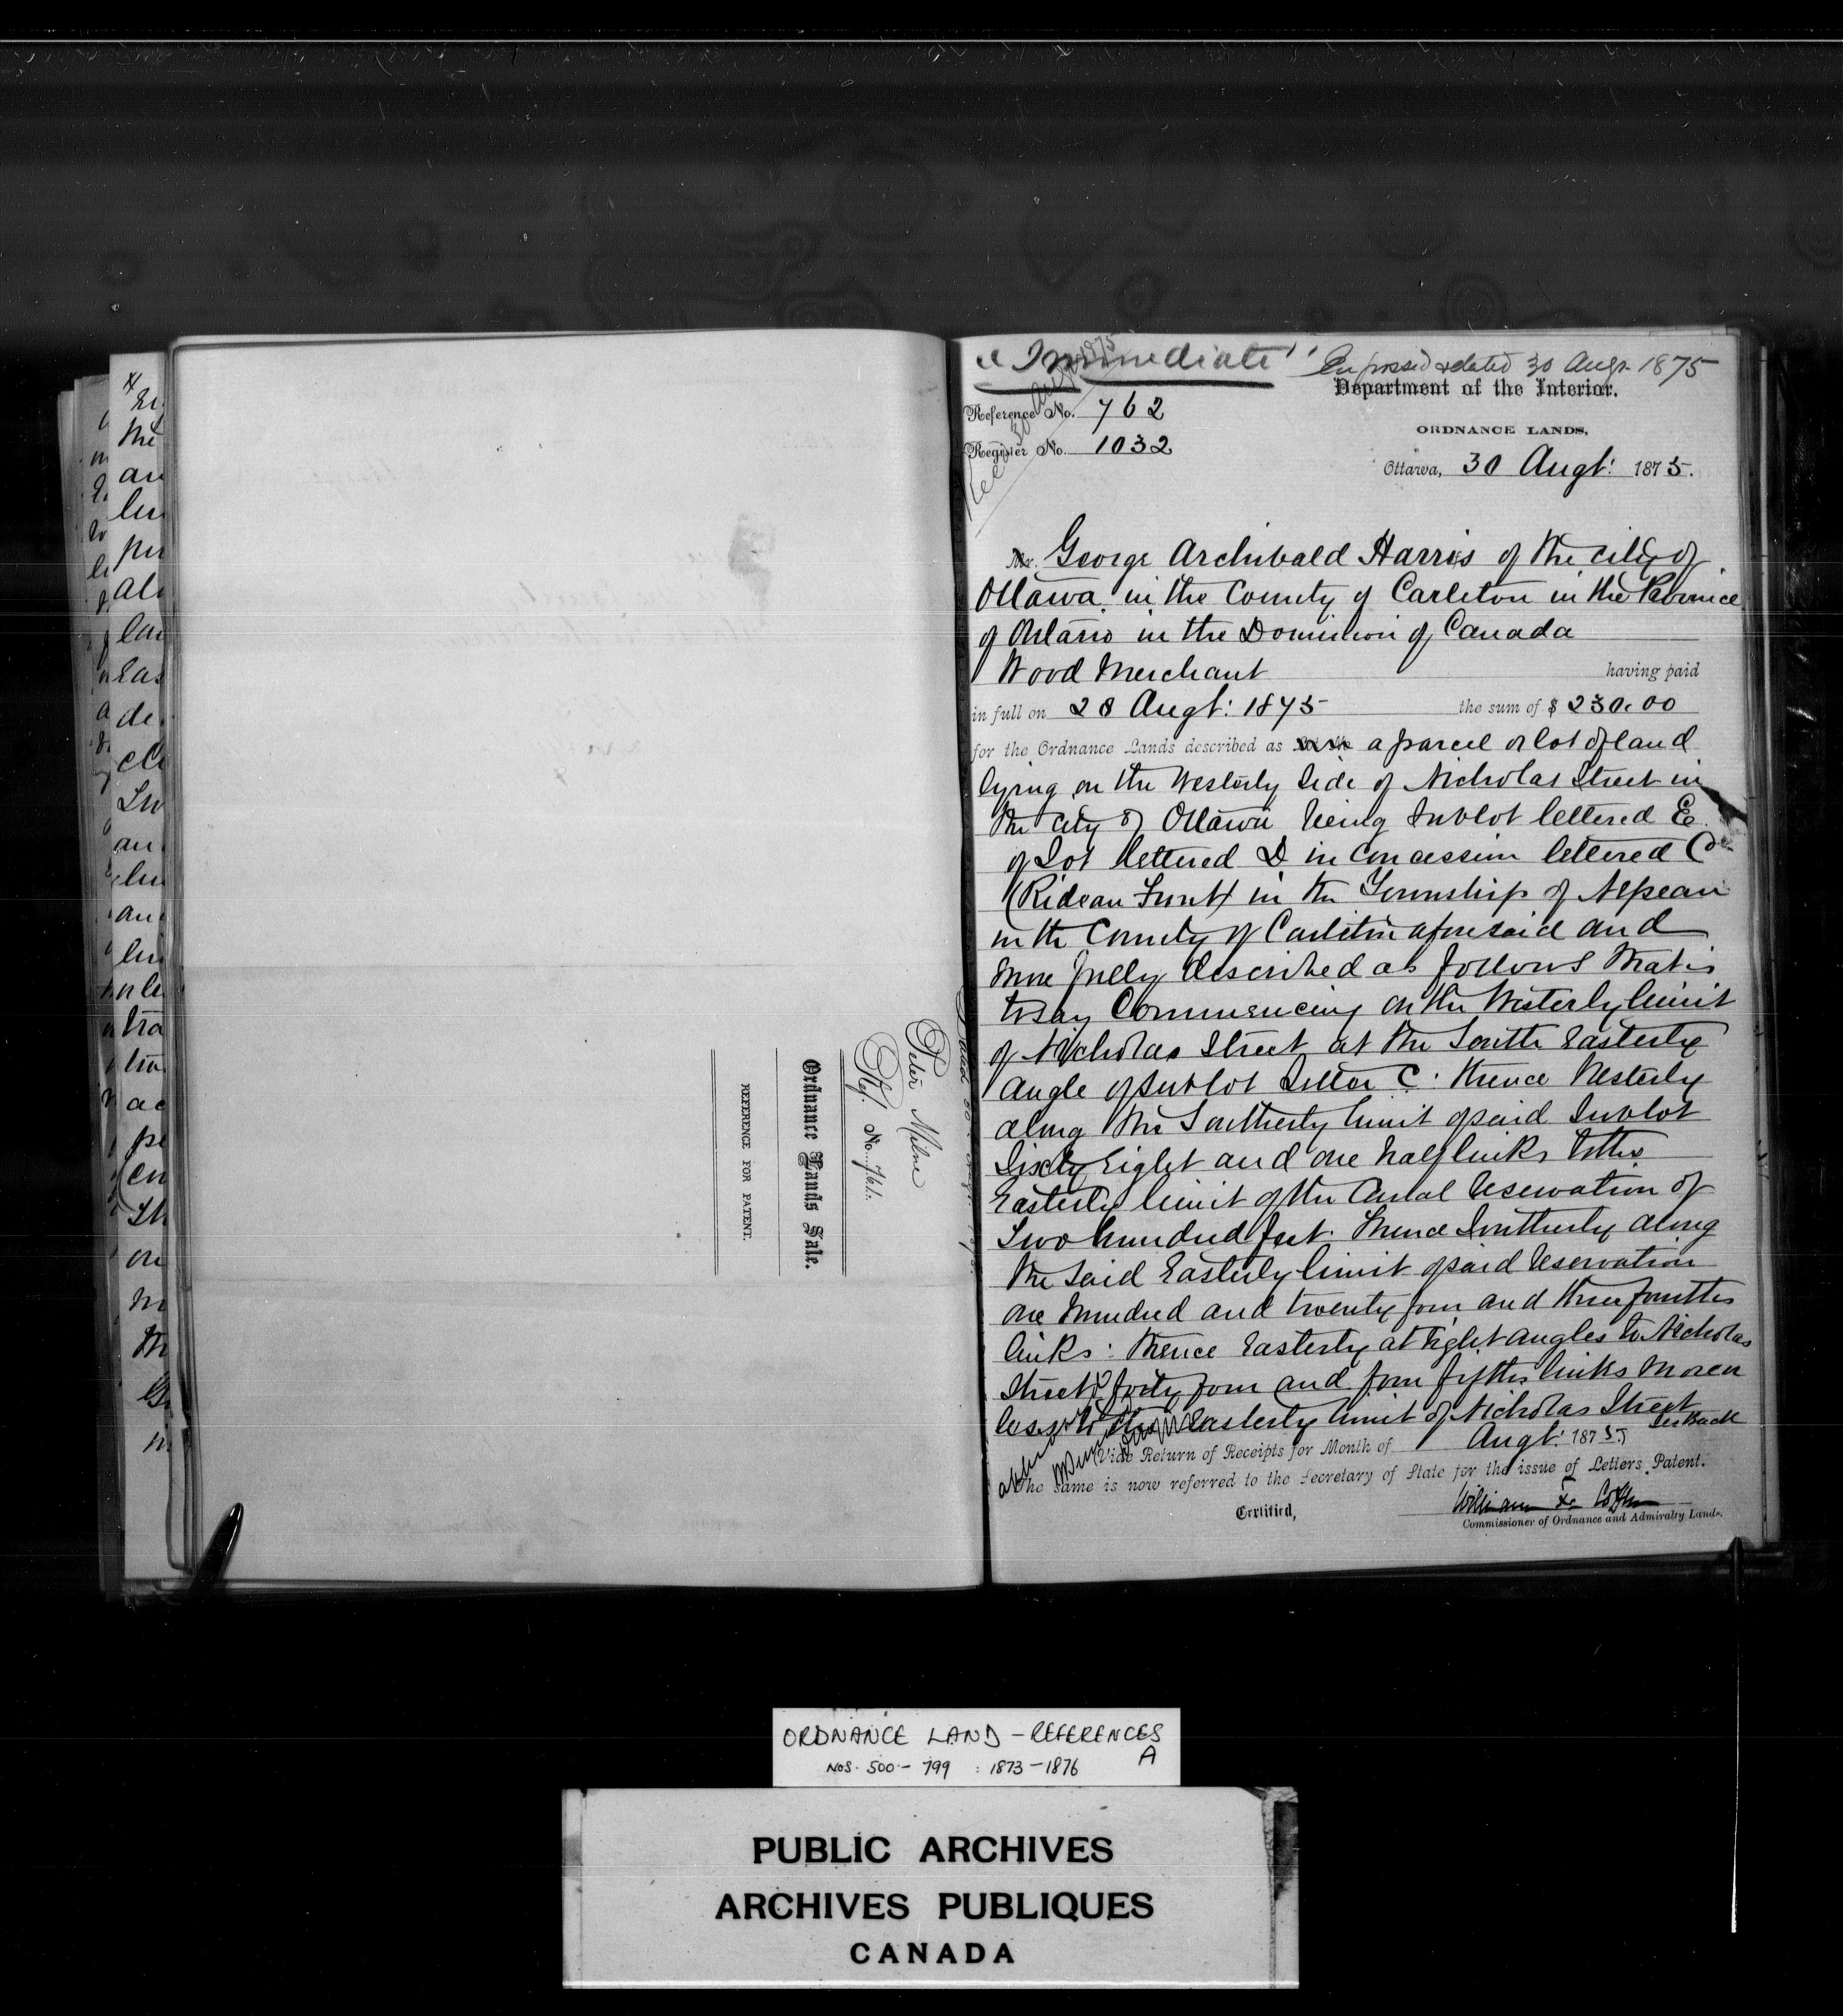 Peter Milne
Ref. No. 761.
Ordnance Lands Sale.
REFERENCE FOR PATENT.
"Immediate"
Engrossed & dated 30 Augt. 1875
Department of the Interior.
Reference No. 762
ORDNANCE LANDS,
Register No. 1032
Ottawa, 30 Augt: 1875.
Mr. George Archibald Harris of the city of
Ottawa in the County of Carleton in the Province
of Ontario in the Dominion of Canada
Wood Merchant having paid
in full on 28 Augt: 1875 the sum of $ 230.00
for the Ordnance Lands described as a parcel or lot of land
lying on the Westerly side of Nicholas Street in
the city of Ottawa being Sublot lettered E
of Lot lettered D in Concession lettered C
(Rideau Front) in the Township of Nepean
in the County of Carleton aforesaid and
more fully described as follows that is
to say Commencing on the Westerly limit
of Nicholas Street at the South Easterly
Angle of Sublot Letter C: thence Westerly
along the Southerly limit of said Sublot
Sixty Eight and one half links to the
Easterly limit of the Canal Reservation of
Two hundred feet. Thence Southerly along
the said Easterly limit of said Reservation
one hundred and twenty four and three fourths
links: thence Easterly at right angles to Nicholas
Street forty four and four fifths links more or
less to the Easterly limit of Nicholas Street
See Back
Vide Return of Receipts for Month of Augt: 1875
The same is now referred to the Secretary of State for the issue of Letters Patent.
Certified,
William F. Coffin
Commissioner of Ordnance and Admiralty Lands.
ORDNANCE LAND - REFERENCES
NOS. 500 - 799 : 1873 - 1876 A
PUBLIC ARCHIVES
ARCHIVES PUBLIQUES
CANADA